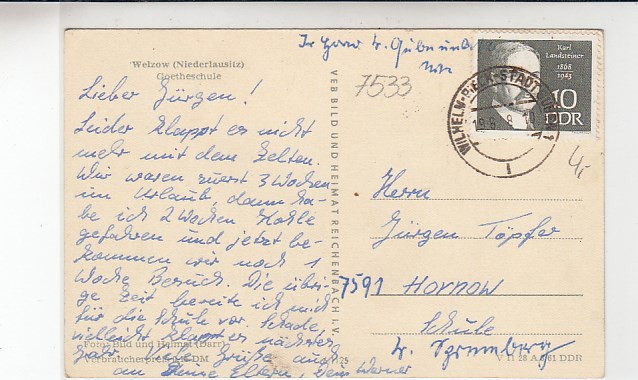 Welzow (Niederlausitz)
Goetheschule
Lieber Jürgen!
Leider klappt es nicht
mehr mit dem Zelten.
Wir waren zuerst 3 Wochen
im Urlaub, dann ha-
be ich 2 Wochen Kohle
gefahren und jetzt be-
kommen wir noch 1
Woche Besuch. Die übri-
ge Zeit bereite ich mich
für die Schule vor. Schade,
vielleicht klappt es nächstes
Jahr. Grüße auch
an Deine Eltern, Dein Werner
Foto: Bild und Heimat (Darr)
Verbraucherpreis DM
VEB BILD UND HEIMAT REICHENBACH I. V.
7533
Karl
Landsteiner
1868
1943
10
DDR
WILHELM-PIECK-STADT GUBEN 1
4,-
Herrn
Jürgen Töpfer
7591 Hornow
Schule
Kr. Spremberg
V 11 28 A 6/61 DDR